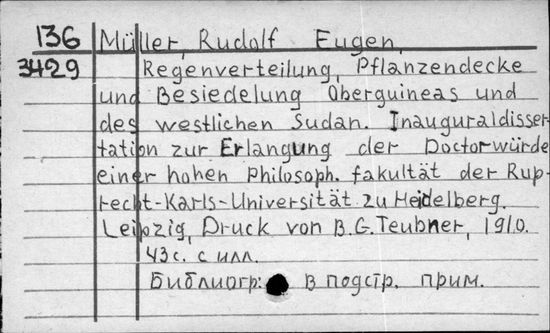 136 Müller, Rudolf Eugen,
3429 Regenverteilung, Pflanzendecke
und Besiedelung Oberguineas und
des westlichen Sudan. Inauguraldisser-
tation zur Erlangung der Doctorwürde
einer hohen Philosoph. fakultät der Rup-
recht-Karls-Universität zu Heidelberg.
Leipzig, Druck von B.G. Teubner, 1910.
43 с. с илл.
Библиогр: в подстр. прим.